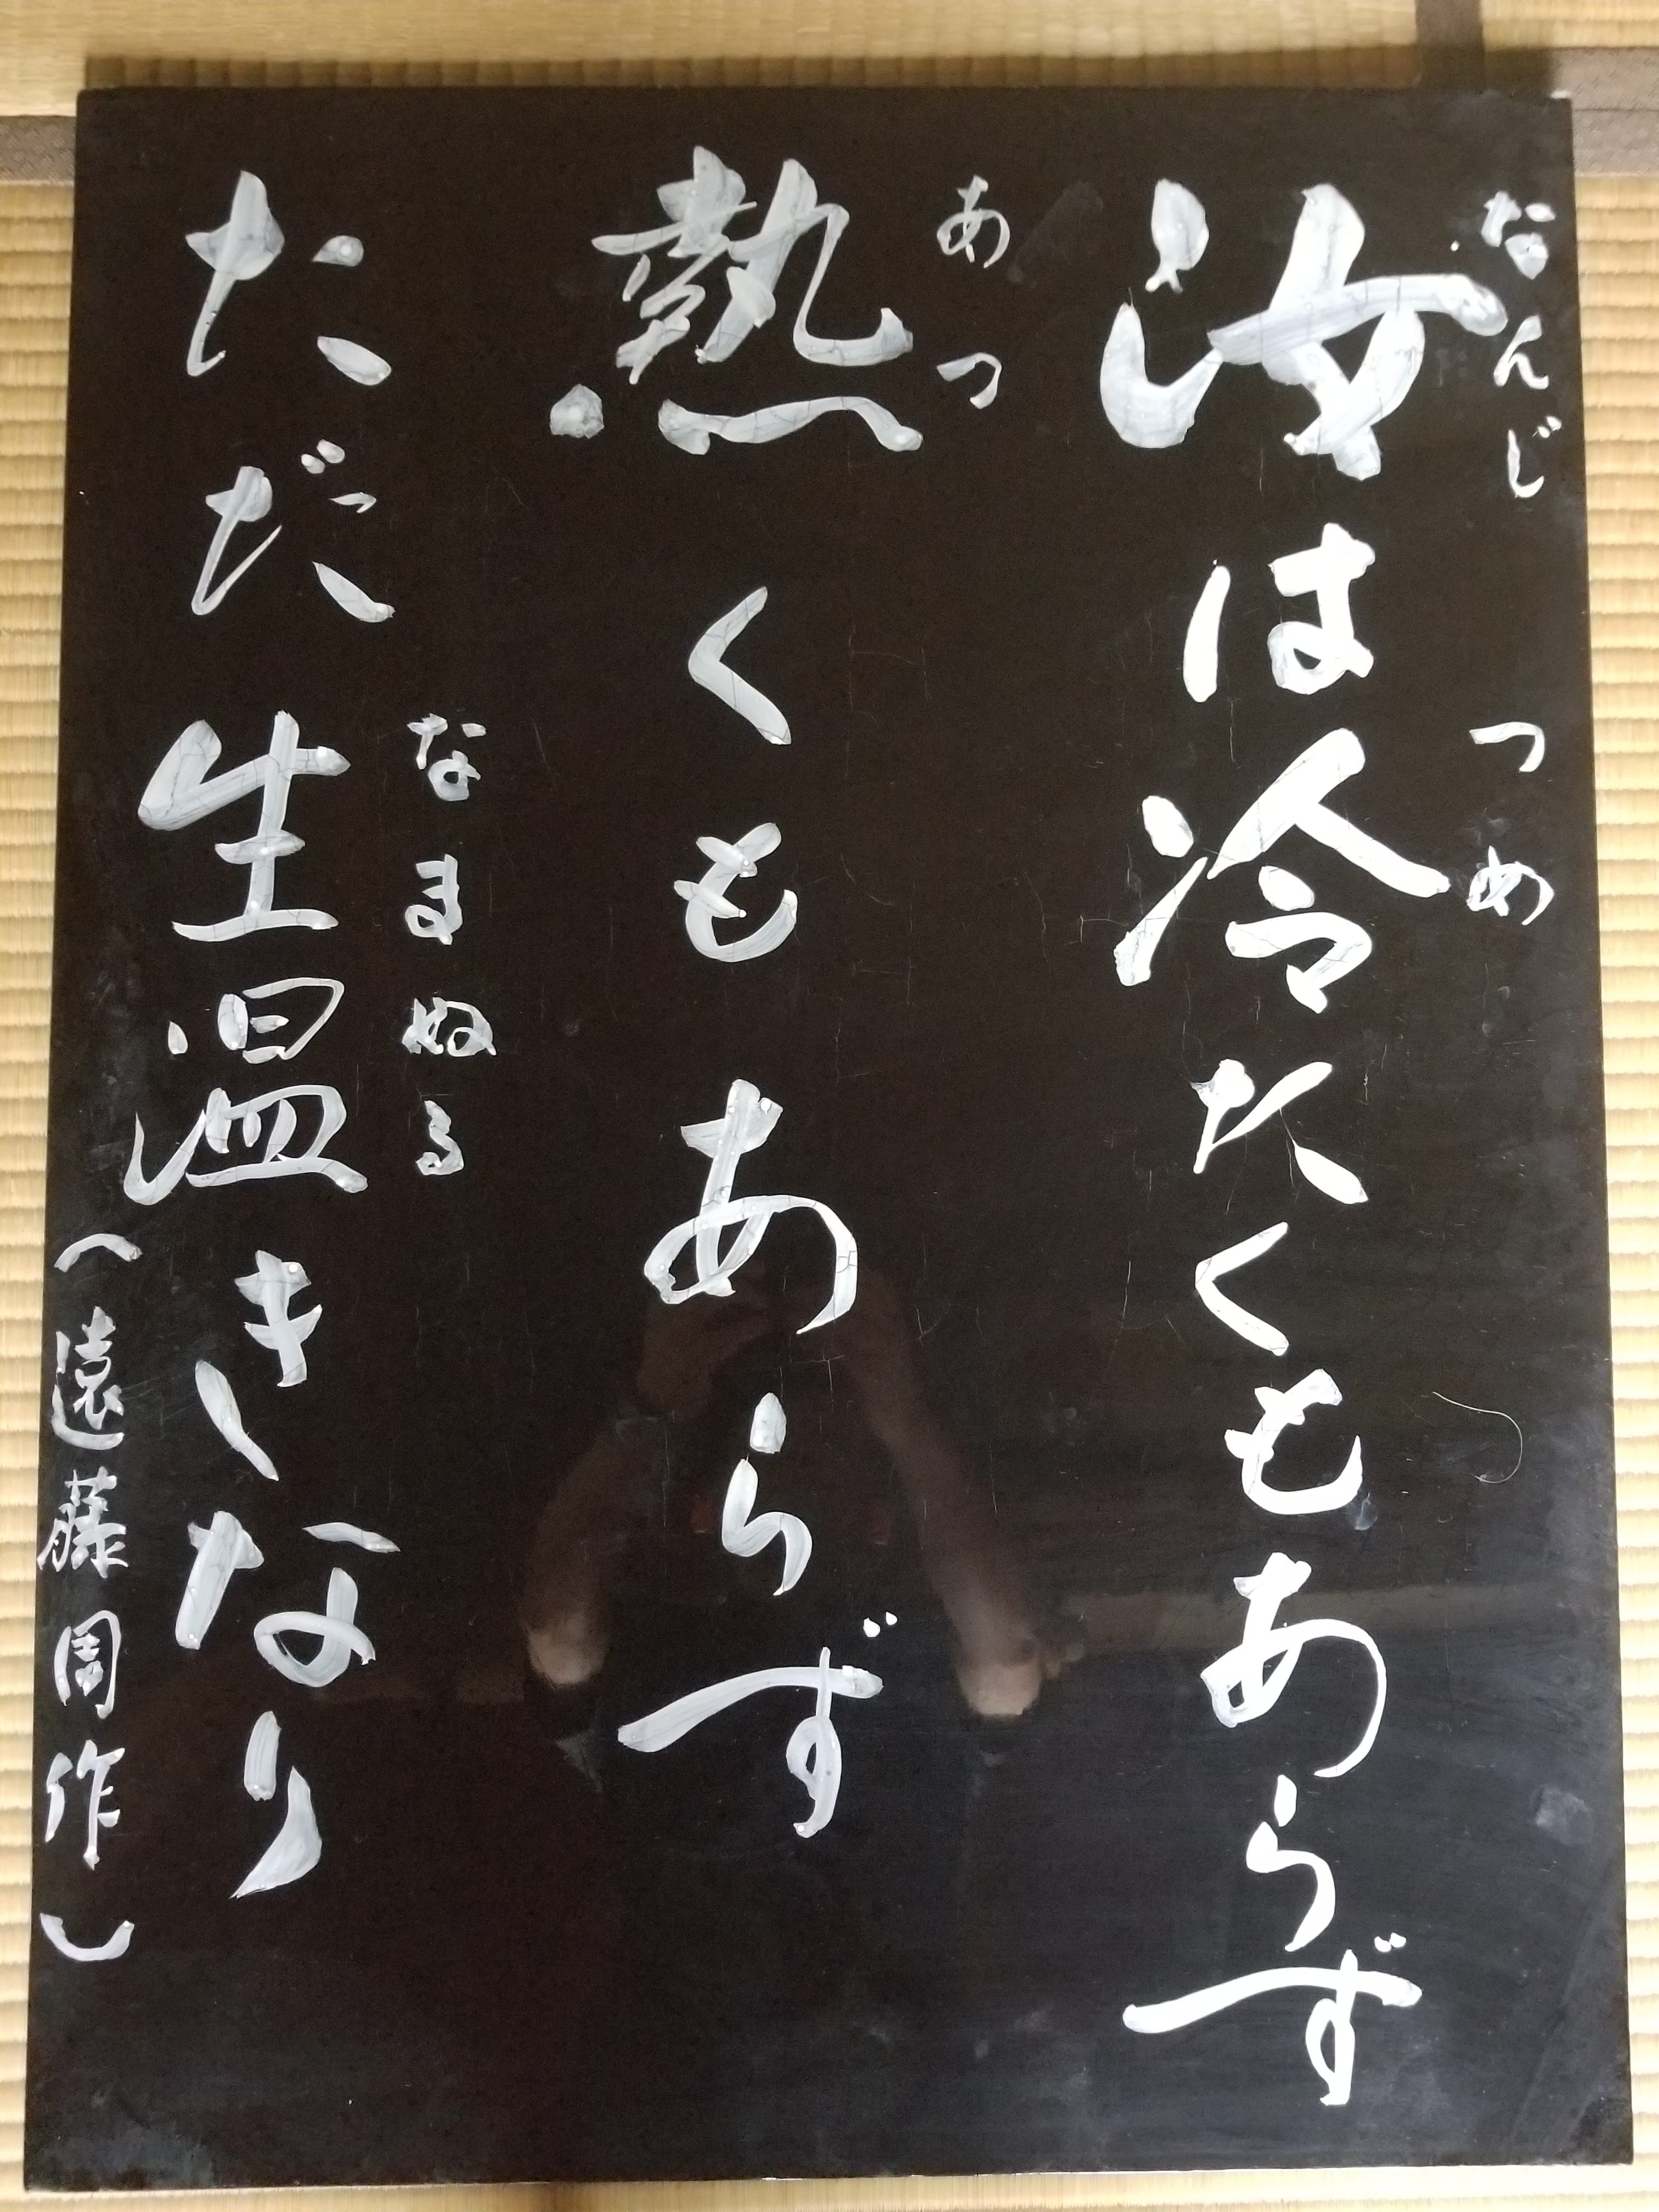 なんじ つめ
汝は冷たくもあらず
あつ
熱くもあらず
なまぬる
ただ生温きなり
(遠藤周作)